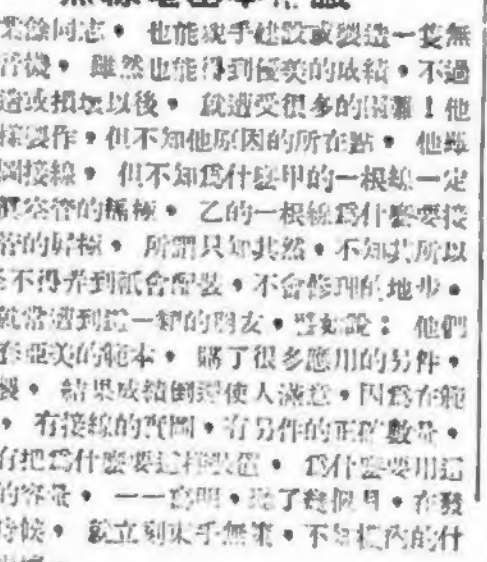 業餘同志。也能親手建設或製造一隻無
音機。雖然也能得到優美的成績。不過
造或損壞以後。就遭受很多的困難!他
樣製作。但不知他原因的所在點。他雖
圖接線。但不知爲什麼甲的一根線一定
眞空管的柵極。乙的一根線爲什麼要接
管的屏極。所謂只知其然。不知其所以
不得弄到祇會配裝。不會修理的地步。
就常遭到這一類的朋友。譬如說:他們
亞美的範本。購了很多應用的另件。
結果成績倒還使人滿意。因爲在範
。有接線的實圖。有另件的正確數量。
有把爲什麼要這樣裝置。爲什麼要用這
的容量。一一寫明。幾個月。在發
時候。就立刻束手無策。不知機內的什